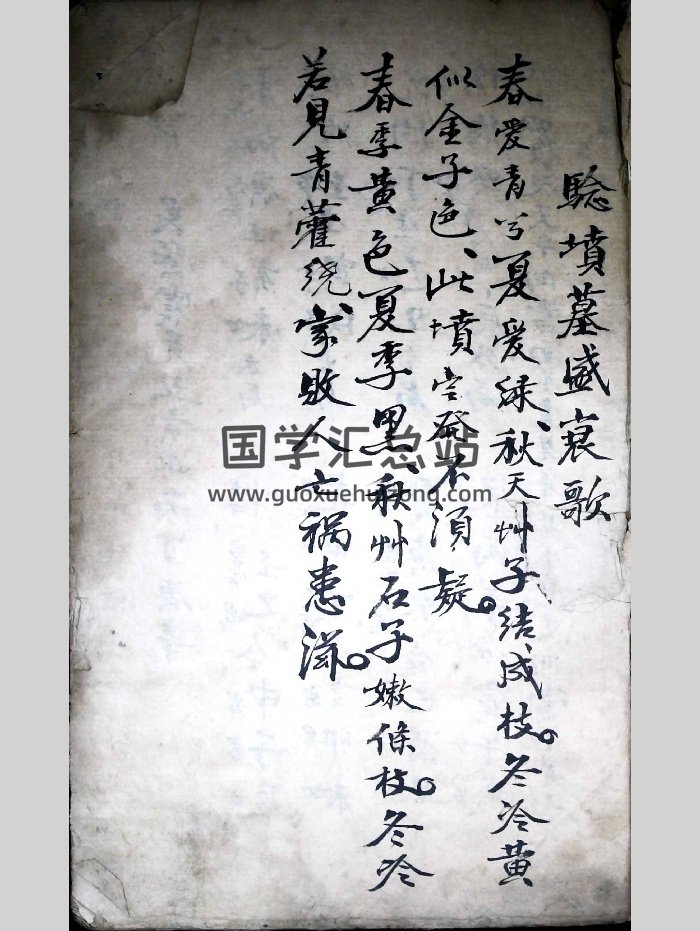 驗墳墓盛衰歌
春爱青兮夏爱绿、秋天艸子结成枝。冬冷黄
似金子色、此墳官發不須疑。
春季黄色夏季黑、秋艸石子嫩條枝。冬冷
若見青藿绕、家敗人亡祸患滋。
国学汇总站
www.guoxuehuizong.com